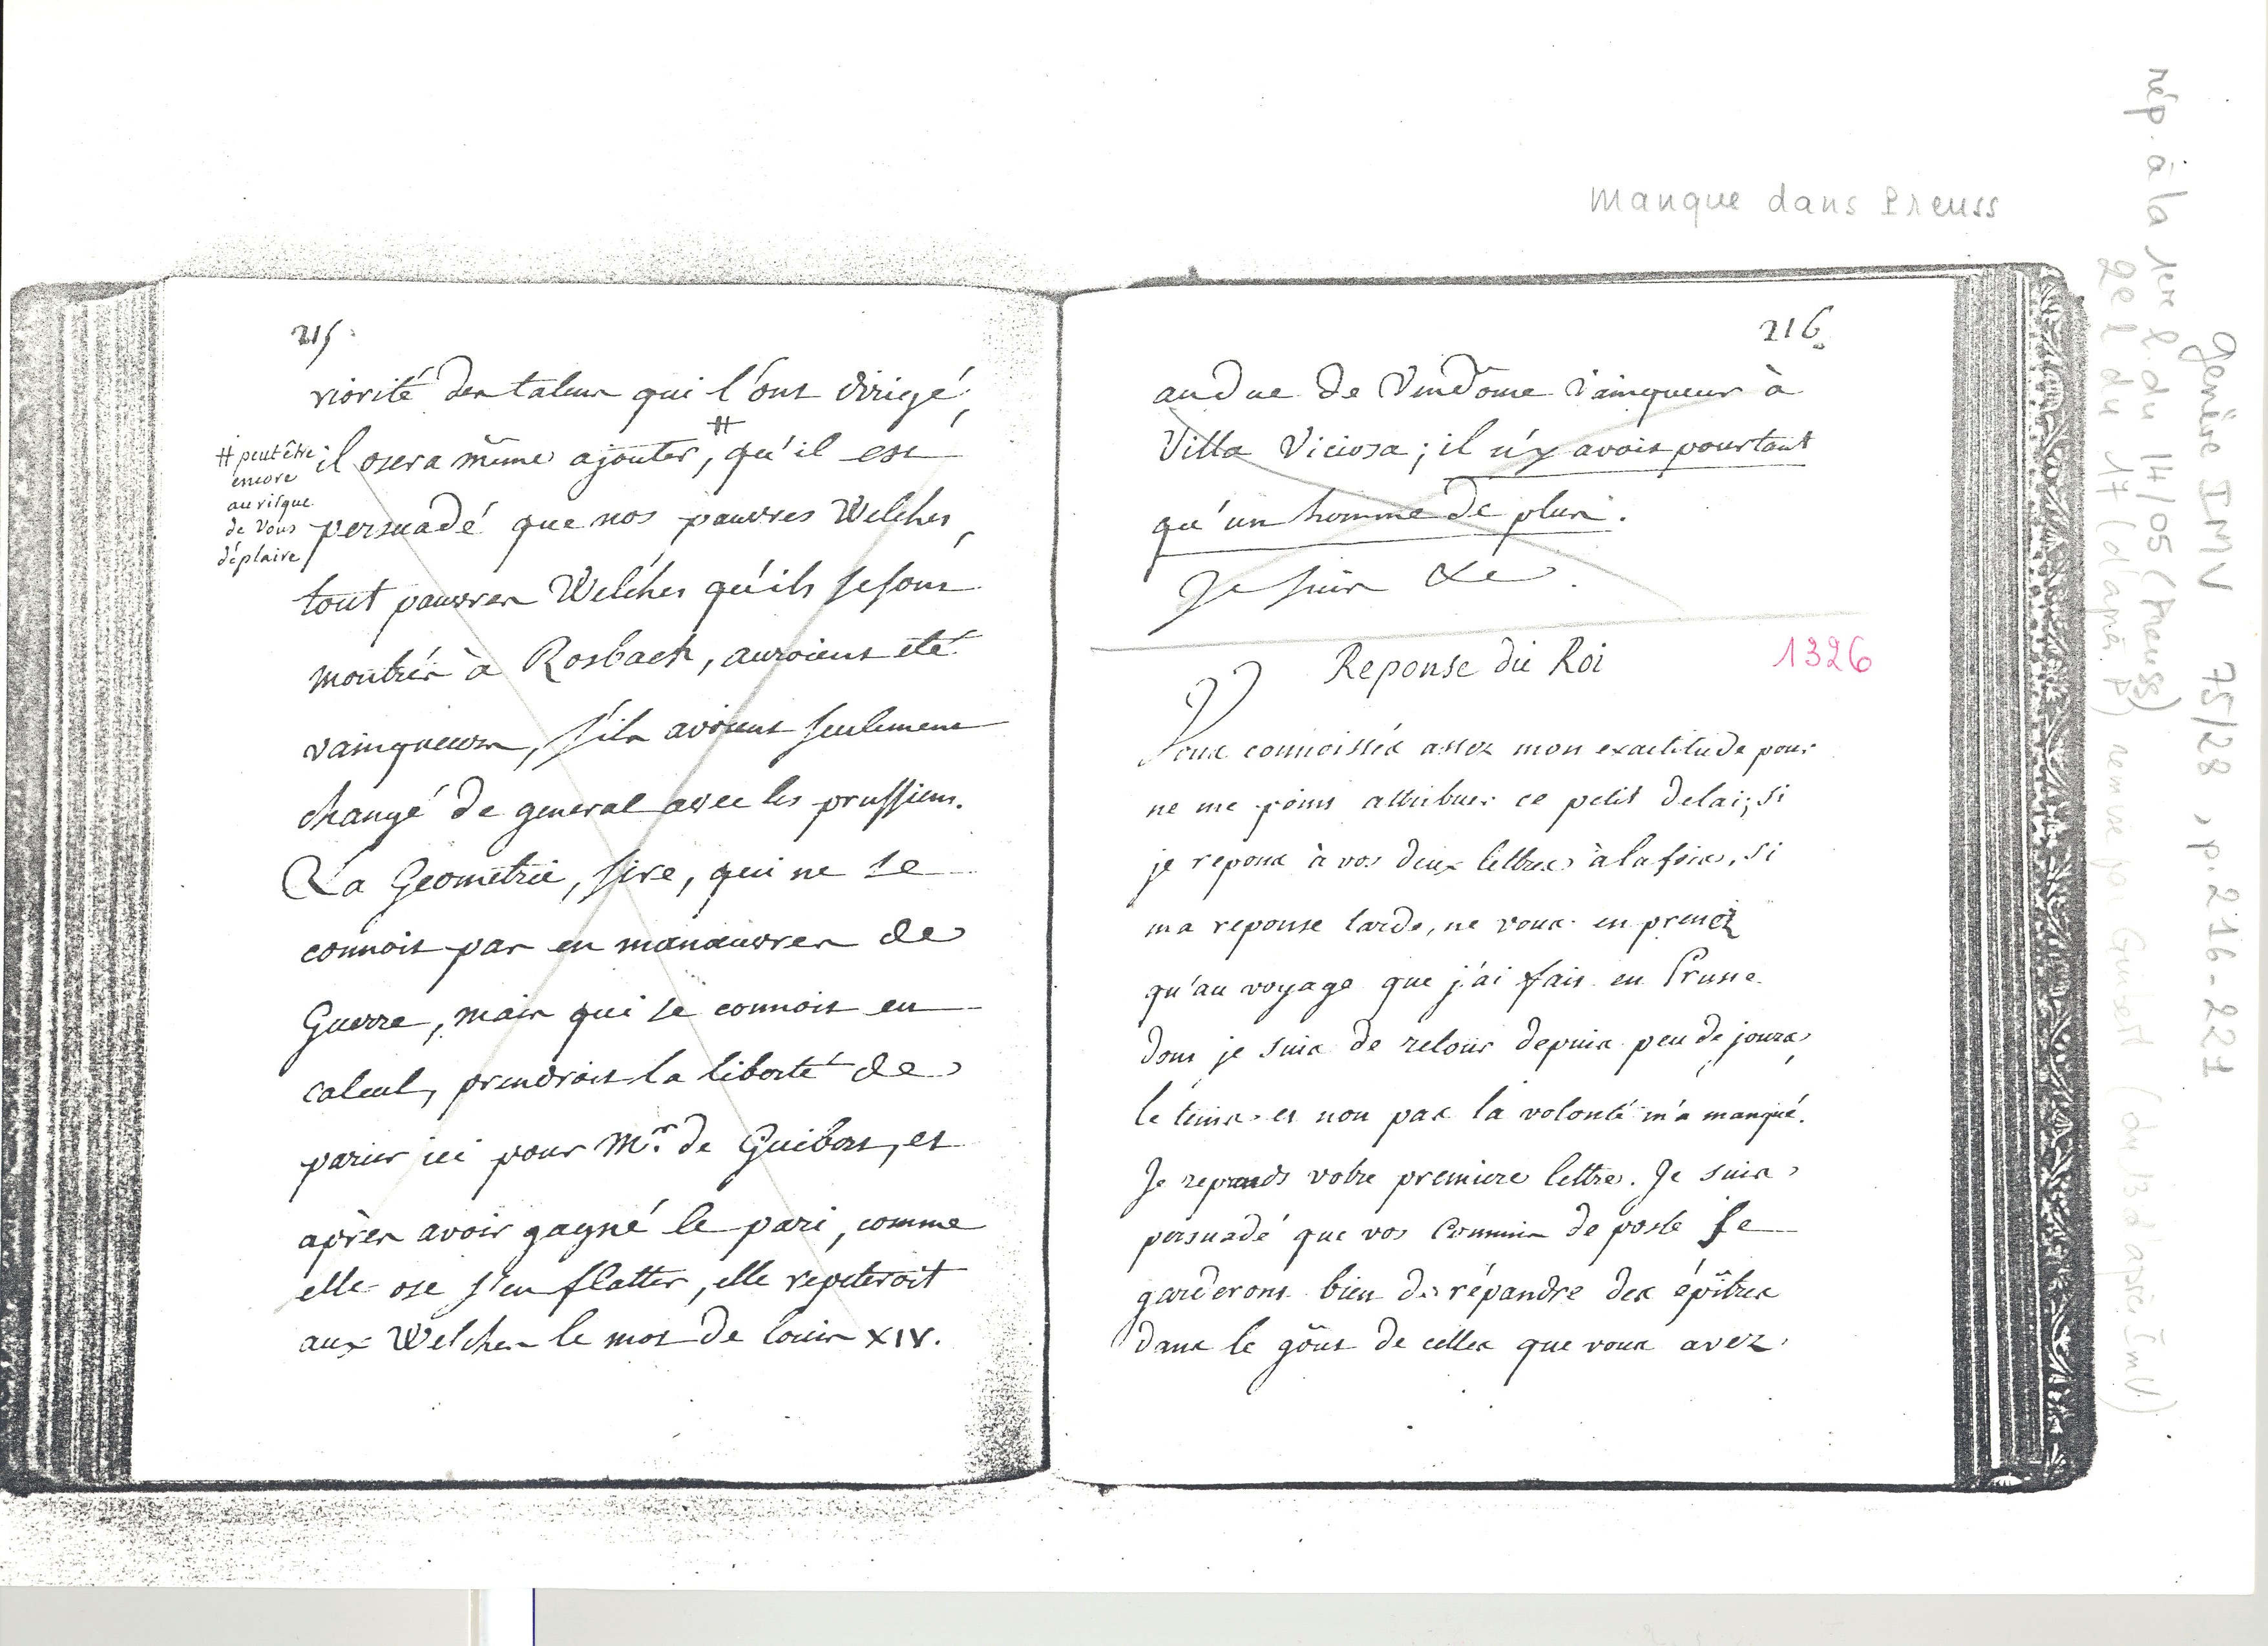 manque dans Preuss
215.
riorité des talens qui l'ont dirigé,
il osera même ajouter, # qu'il est
# peut être
encore
au risque
de Vous
déplaire
persuadé que nos pauvres Welches,
tout pauvres Welches qu'ils se sont
montrés à Rosback, auroient eté
vainqueurs, s'ils avoient seulement
changé de general avec les prussiens.
La Geometrie, sire, qui ne se
connoit pas en manœuvres de
Guerre, mais qui se connoit en
calcul, prendroit la liberté de
parier ici pour Mr. de Guibert, et
après avoir gagné le pari, comme
elle ose s'en flatter, elle repeteroit
aux Welches le mot de louis XIV.
216.
au Duc de Vendôme vainqueur à
Villa Viciosa; il n'y avoit pourtant
qu'un homme de plus.
Je suis &c.
Reponse du Roi
1326
Vous connoissés assez mon exactitude pour
ne me point attribuer ce petit delai; si
je repons à vos deux lettres à la fois, si
ma reponse tarde, ne vous en prenez
qu'au voyage que j'ai fait en Prusse
dont je suis de retour depuis peu de jours,
le tems et non pas la volonté m'a manqué.
Je reprends votre premiere lettre. Je suis
persuadé que vos Commis de poste se
garderont bien de répandre des épîtres
dans le goût de celles que vous avez
Genève IMV 75/28, p. 216-221
rép. à la 1ere l. du 14/05 (Preuss)
2e l du 17 (d'après P) remise par Guibert (du 13 d'après IMV)